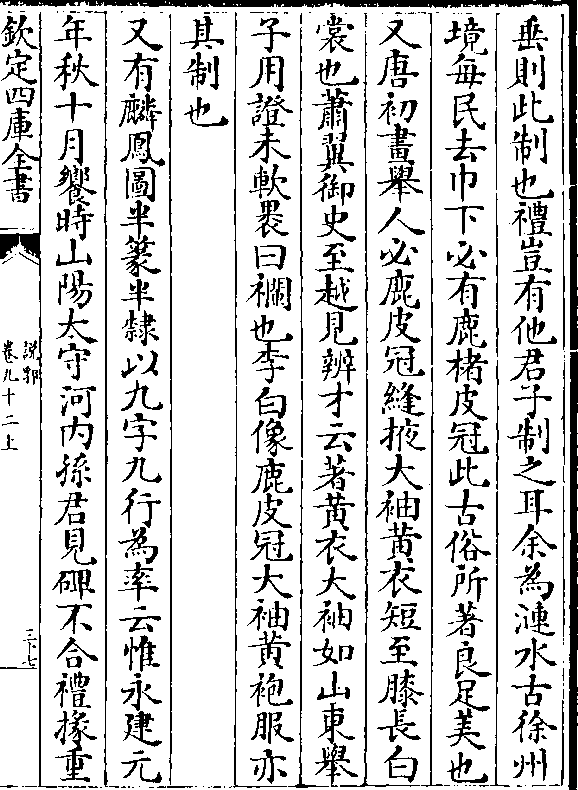 垂則此制也禮豈有他君子制之耳余為漣水古徐州
境每民去巾下必有鹿楮皮冠此古俗所著良足美也
又唐初畫舉人必鹿皮冠縫掖大袖黄衣短至膝長白
裳也蕭翼御史至越見辨才云著黄衣大袖如山東舉
子用證未軟褁曰襴也李白像鹿皮冠大袖黄袍服亦
其制也
又有麟鳳圖半篆半隸以九字九行為率云惟永建元
年秋十月饗時山陽太守河内孫君見碑不合禮掾重
欽定四庫全書
說郛
卷九十二上
三十七